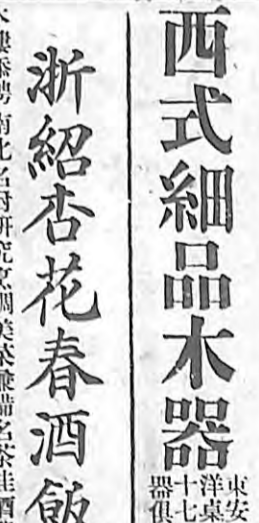 西式細品木器
東安
洋桌
十七
器俱
浙紹杏花春酒飯
樓添聘南北名厨研究烹調美菜兼備名茶佳酒